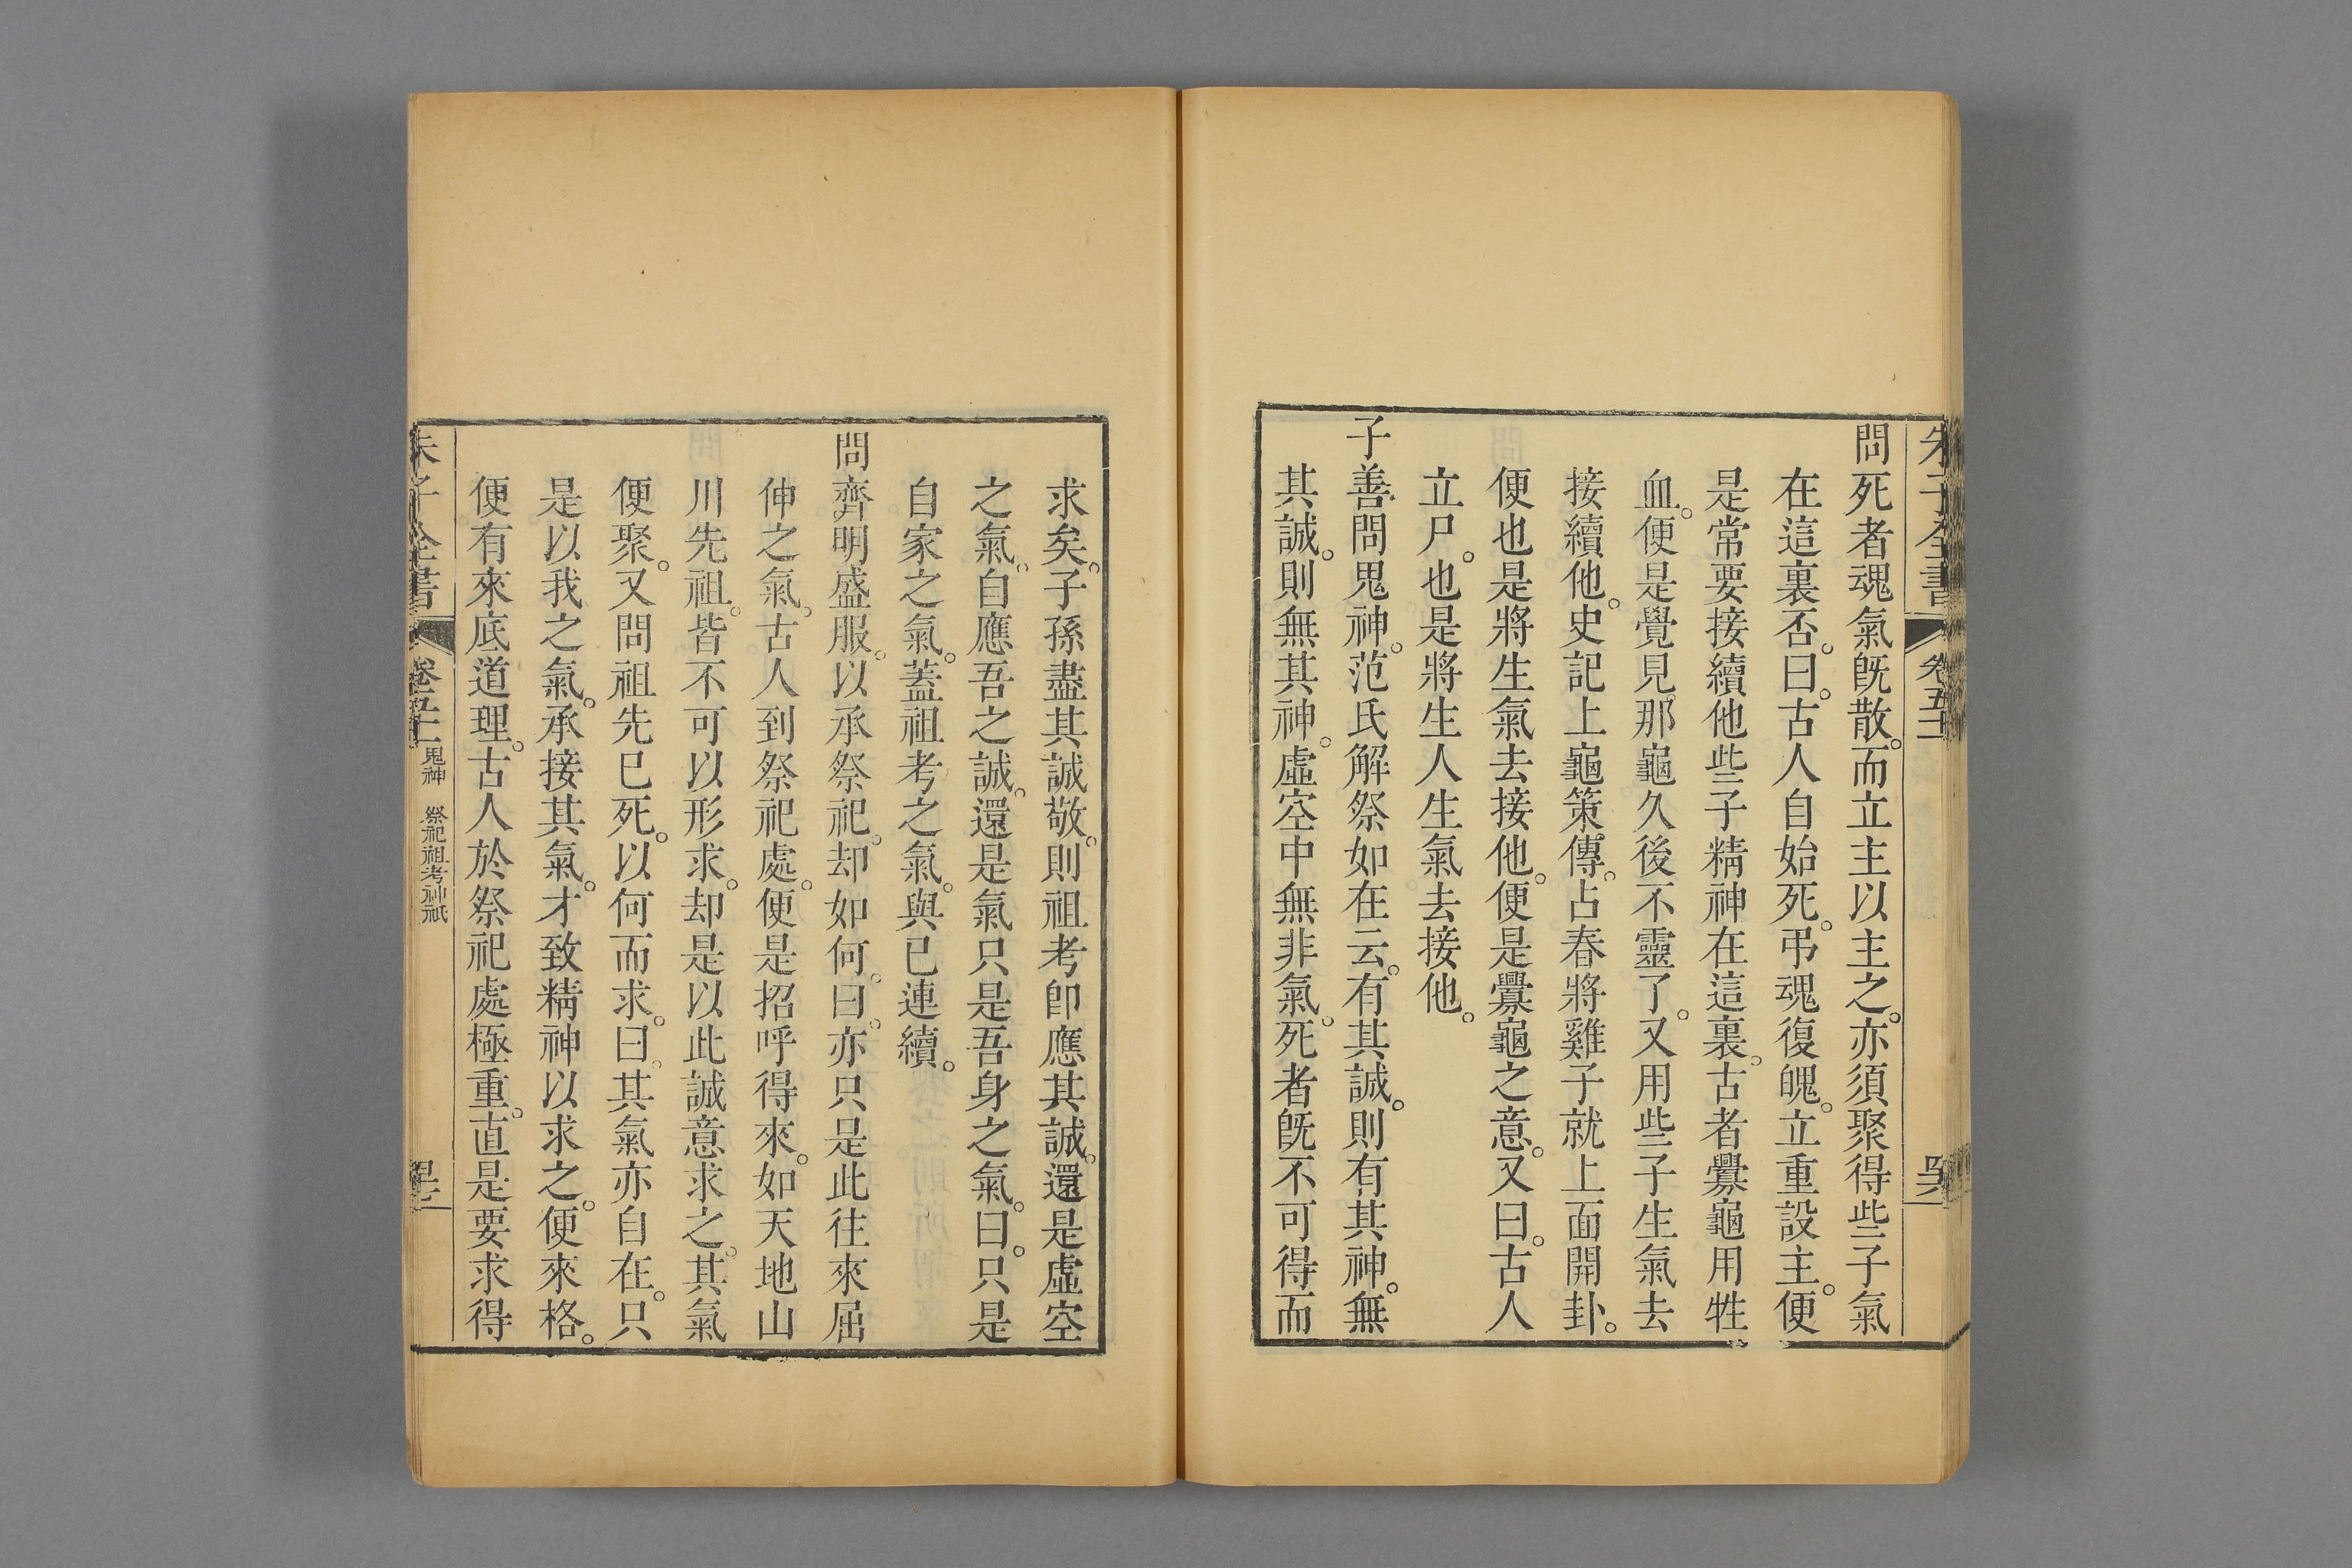 朱子全書 卷五十一
問死者魂氣旣散。而立主以主之。亦須聚得些子氣
在這裏否。曰。古人自始死。弔魂復魄。立重設主。便
是常要接續他些子精神在這裏。古者釁龜用牲
血。便是覺見那龜久後不靈了。又用些子生氣去
接續他。史記上龜策傳。占春將雞子就上面開卦。
便也是將生氣去接他。便是釁龜之意。又曰。古人
立尸。也是將生人生氣去接他。
子善問鬼神。范氏解祭如在云。有其誠。則有其神。無
其誠。則無其神。虛空中無非氣。死者旣不可得而
求矣。子孫盡其誠敬。則祖考卽應其誠。還是虛空
之氣。自應吾之誠。還是氣只是吾身之氣。曰。只是
自家之氣。蓋祖考之氣。與已連續。
問齊明盛服。以承祭祀。却如何。曰。亦只是此往來屈
伸之氣。古人到祭祀處。便是招呼得來。如天地山
川先祖。皆不可以形求。却是以此誠意求之。其氣
便聚。又問祖先已死。以何而求。曰。其氣亦自在。只
是以我之氣。承接其氣。才致精神以求之。便來格。
便有來底道理。古人於祭祀處極重。直是要求得
朱子全書 卷五十一 鬼神 祭祀祖考神祇